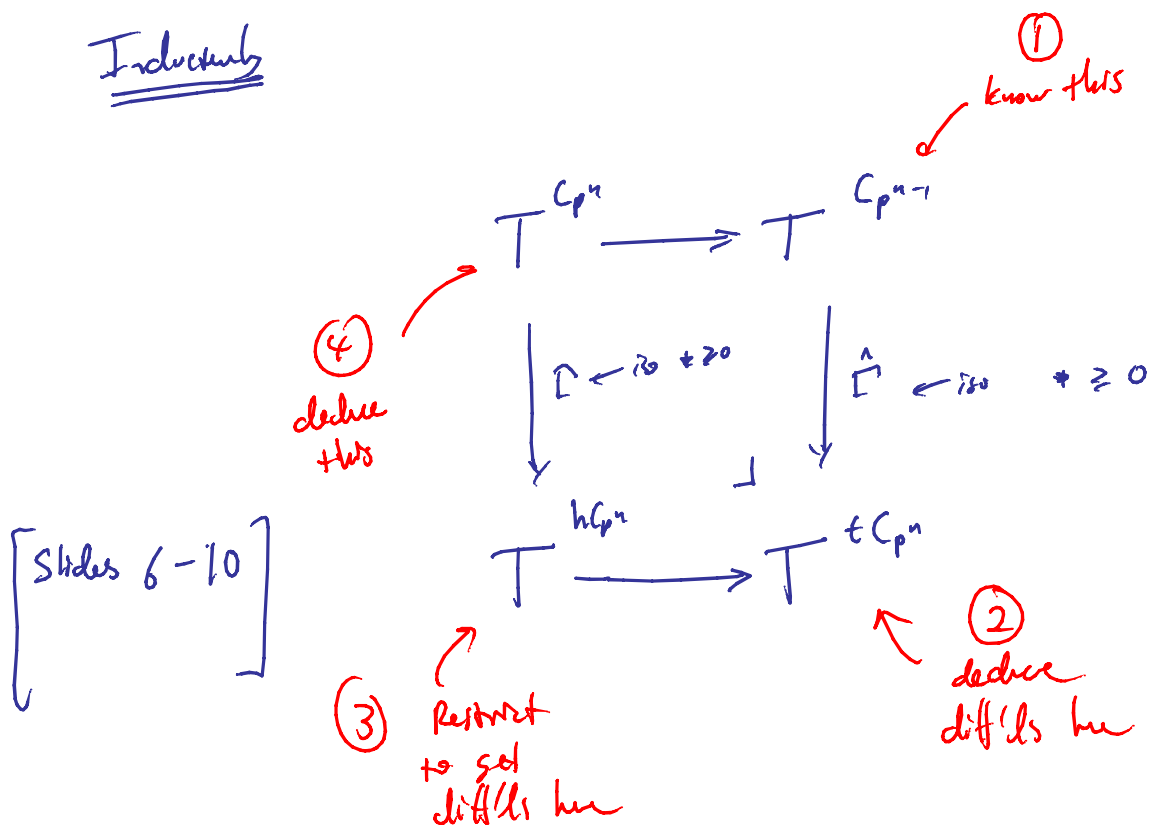 Inductively
①
know this
T^{C_{p^n}} → T^{C_{p^{n-1}}}
④
deduce
this
Γ ← iso * ≥ 0
Γ̂ ← iso * ≥ 0
T^{hC_{p^n}} → T^{tC_{p^n}}
[Slides 6-10]
②
deduce
diff'ls here
③
Restrict
to get
diff'ls here